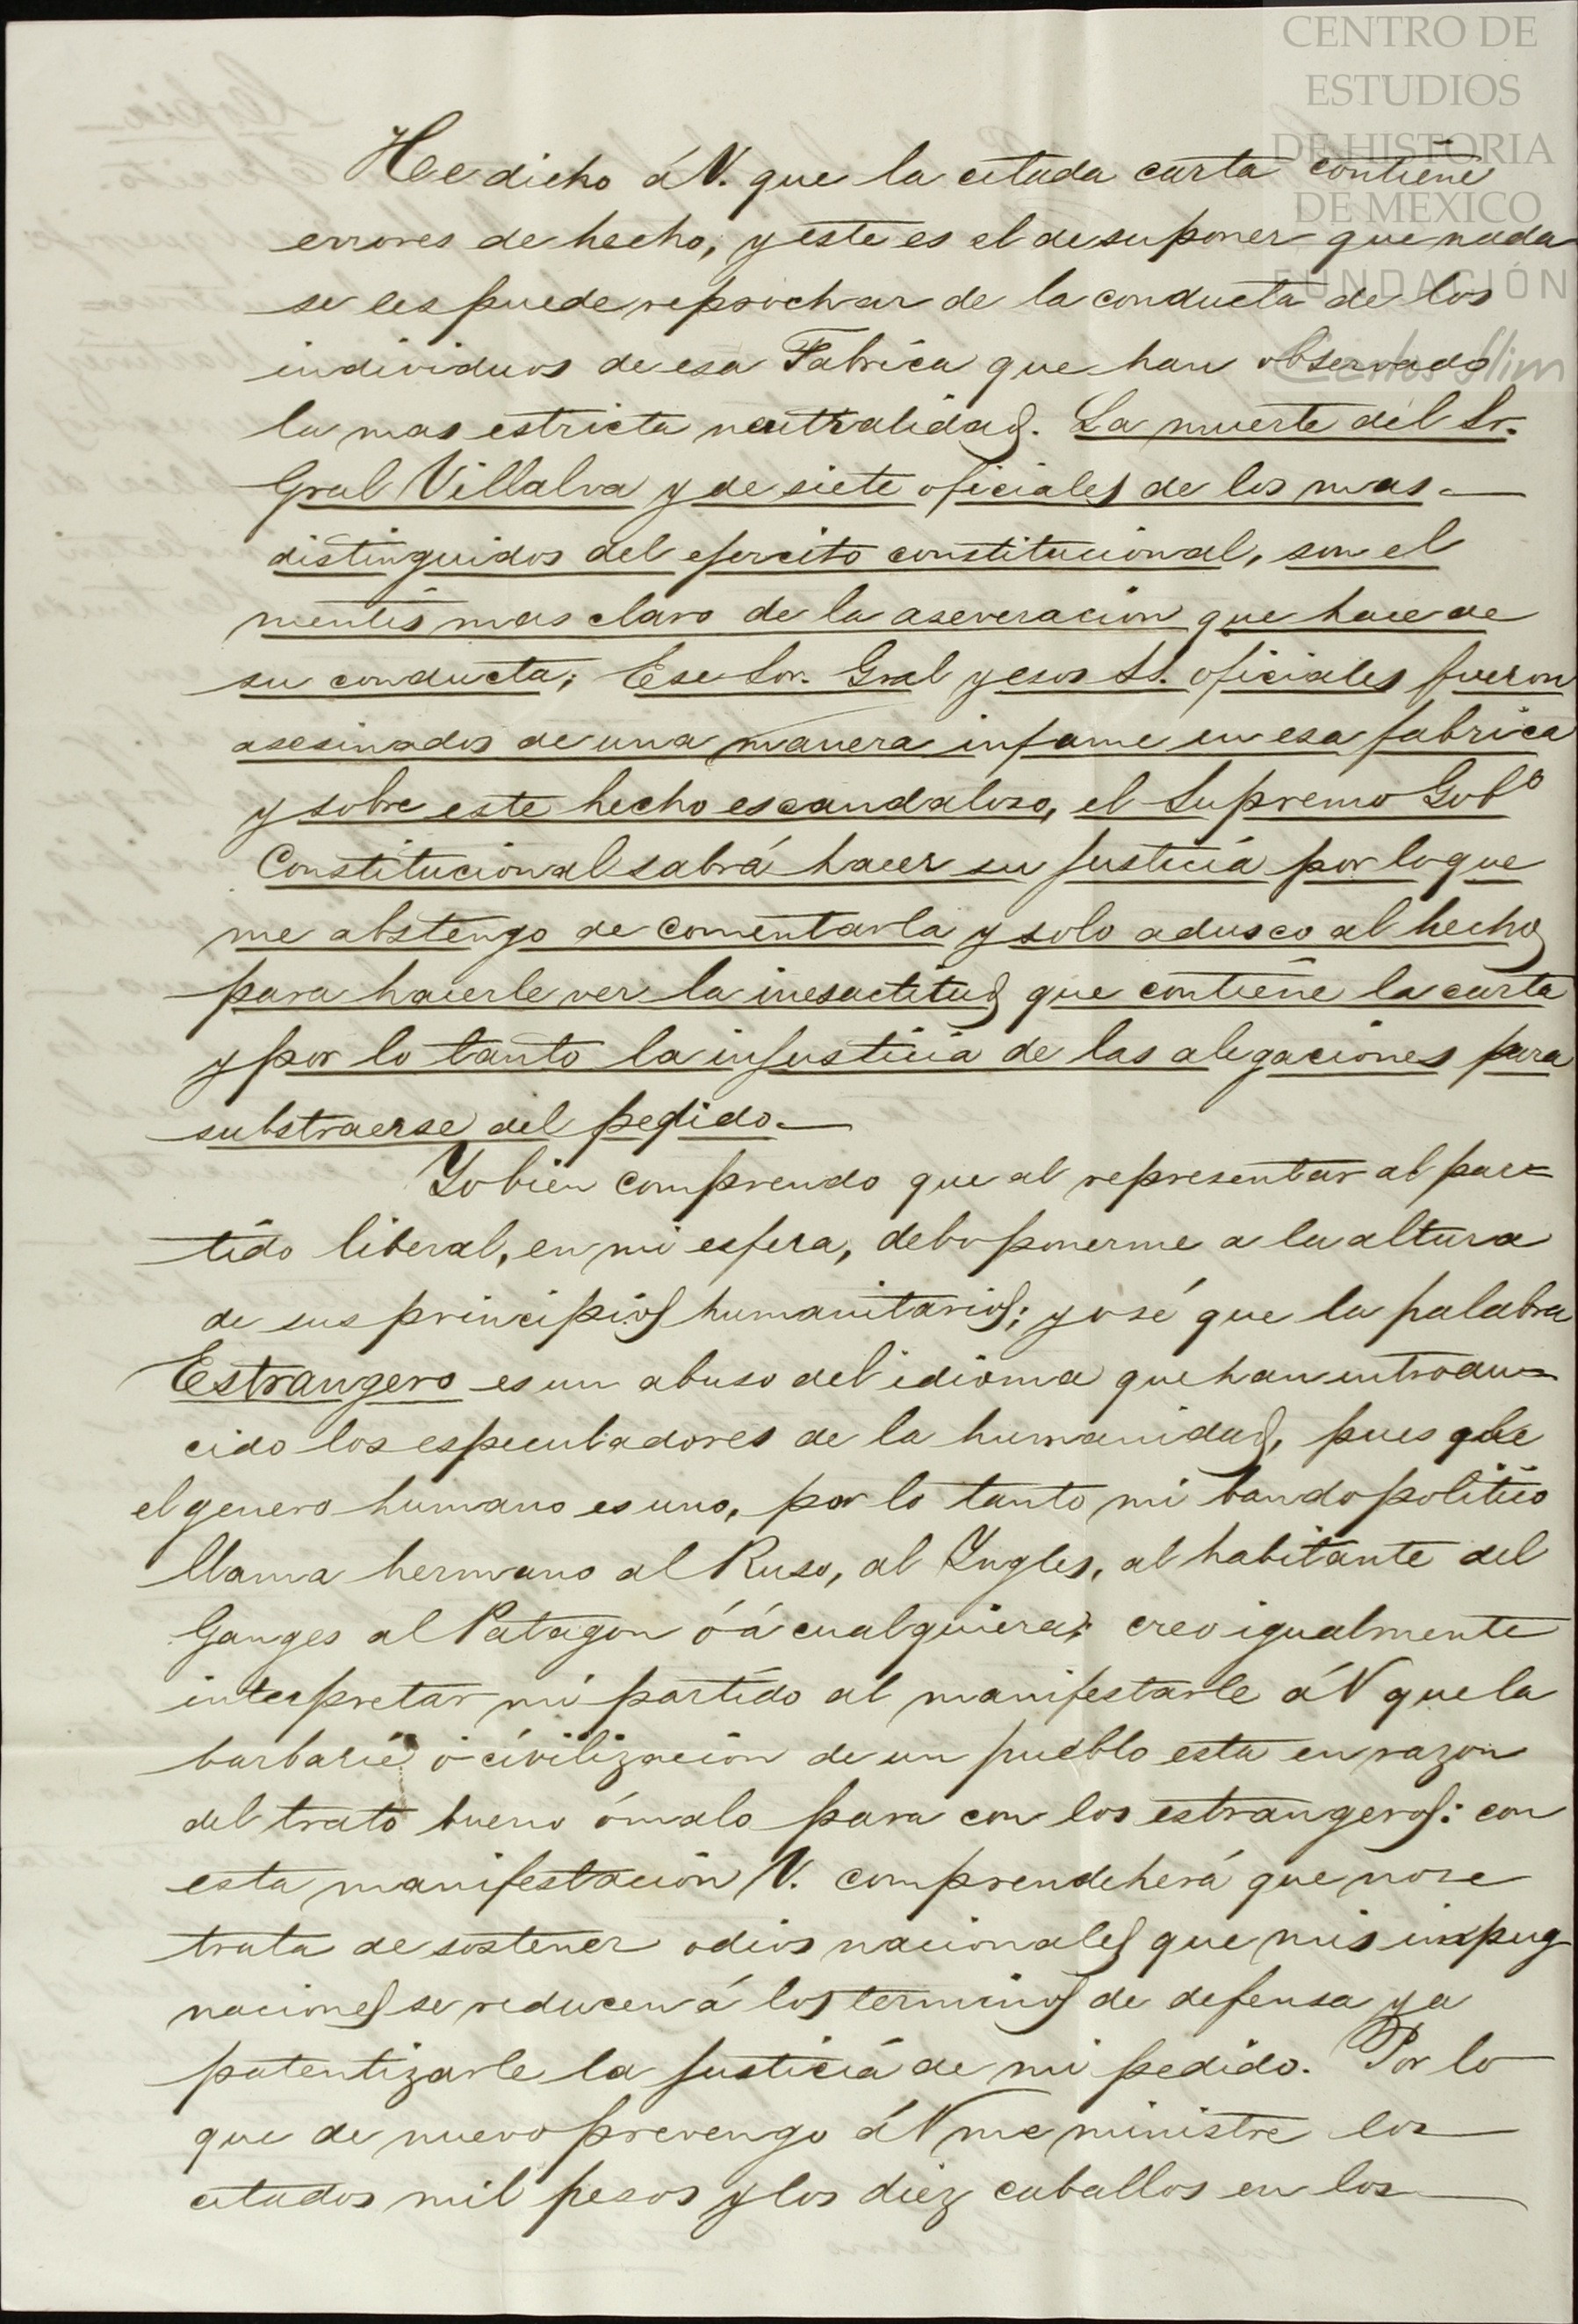 CENTRO DE
ESTUDIOS
DE HISTORIA
DE MEXICO
FUNDACIÓN
Carlos Slim
He dicho á V. que la citada carta contiene
errores de hecho, y este es el de suponer que nada
se les puede reprochar de la conducta de los
individuos de esa Fabrica que han observado
la mas estricta neutralidad. La muerte del Sr.
Gral Villalva y de siete oficiales de los mas
distinguidos del ejercito constitucional, son el
mentis mas claro de la aseveracion que hace de
su conducta; Ese Sor. Gral y esos SS. oficiales fueron
asesinados de una manera infame en esa fabrica
y sobre este hecho escandaloso, el Supremo Gobº
Constitucional sabrá hacer su justicia por lo que
me abstengo de comentarla y solo adusco al hecho
para hacerle ver la inesactitud que contiene la carta
y por lo tanto la injusticia de las alegaciones para
substraerse del pedido.
Yo bien comprendo que al representar al par=
tido liberal, en mi esfera, debo ponerme a la altura
de sus principios humanitarios; yo sé que la palabra
Estrangero es un abuso del idioma que han introdu=
cido los especuladores de la humanidad, pues que
el genero humano es uno, por lo tanto mi bando politico
llama hermano al Ruso, al Yngles, al habitante del
Ganges al Patagon ó á cualquiera; creo igualmente
interpretar mi partido al manifestarle á V que la
barbarie ó civilización de un pueblo esta en razon
del trato bueno ó malo para con los estrangeros: con
esta manifestacion V. comprendeherá que no se
trata de sostener odios nacionales que mis impug
naciones se reducen á los terminos de defensa y a
patentizarle la justicia de mi pedido. Por lo
que de nuevo prevengo á V me ministre los
citados mil pesos y los diez caballos en los